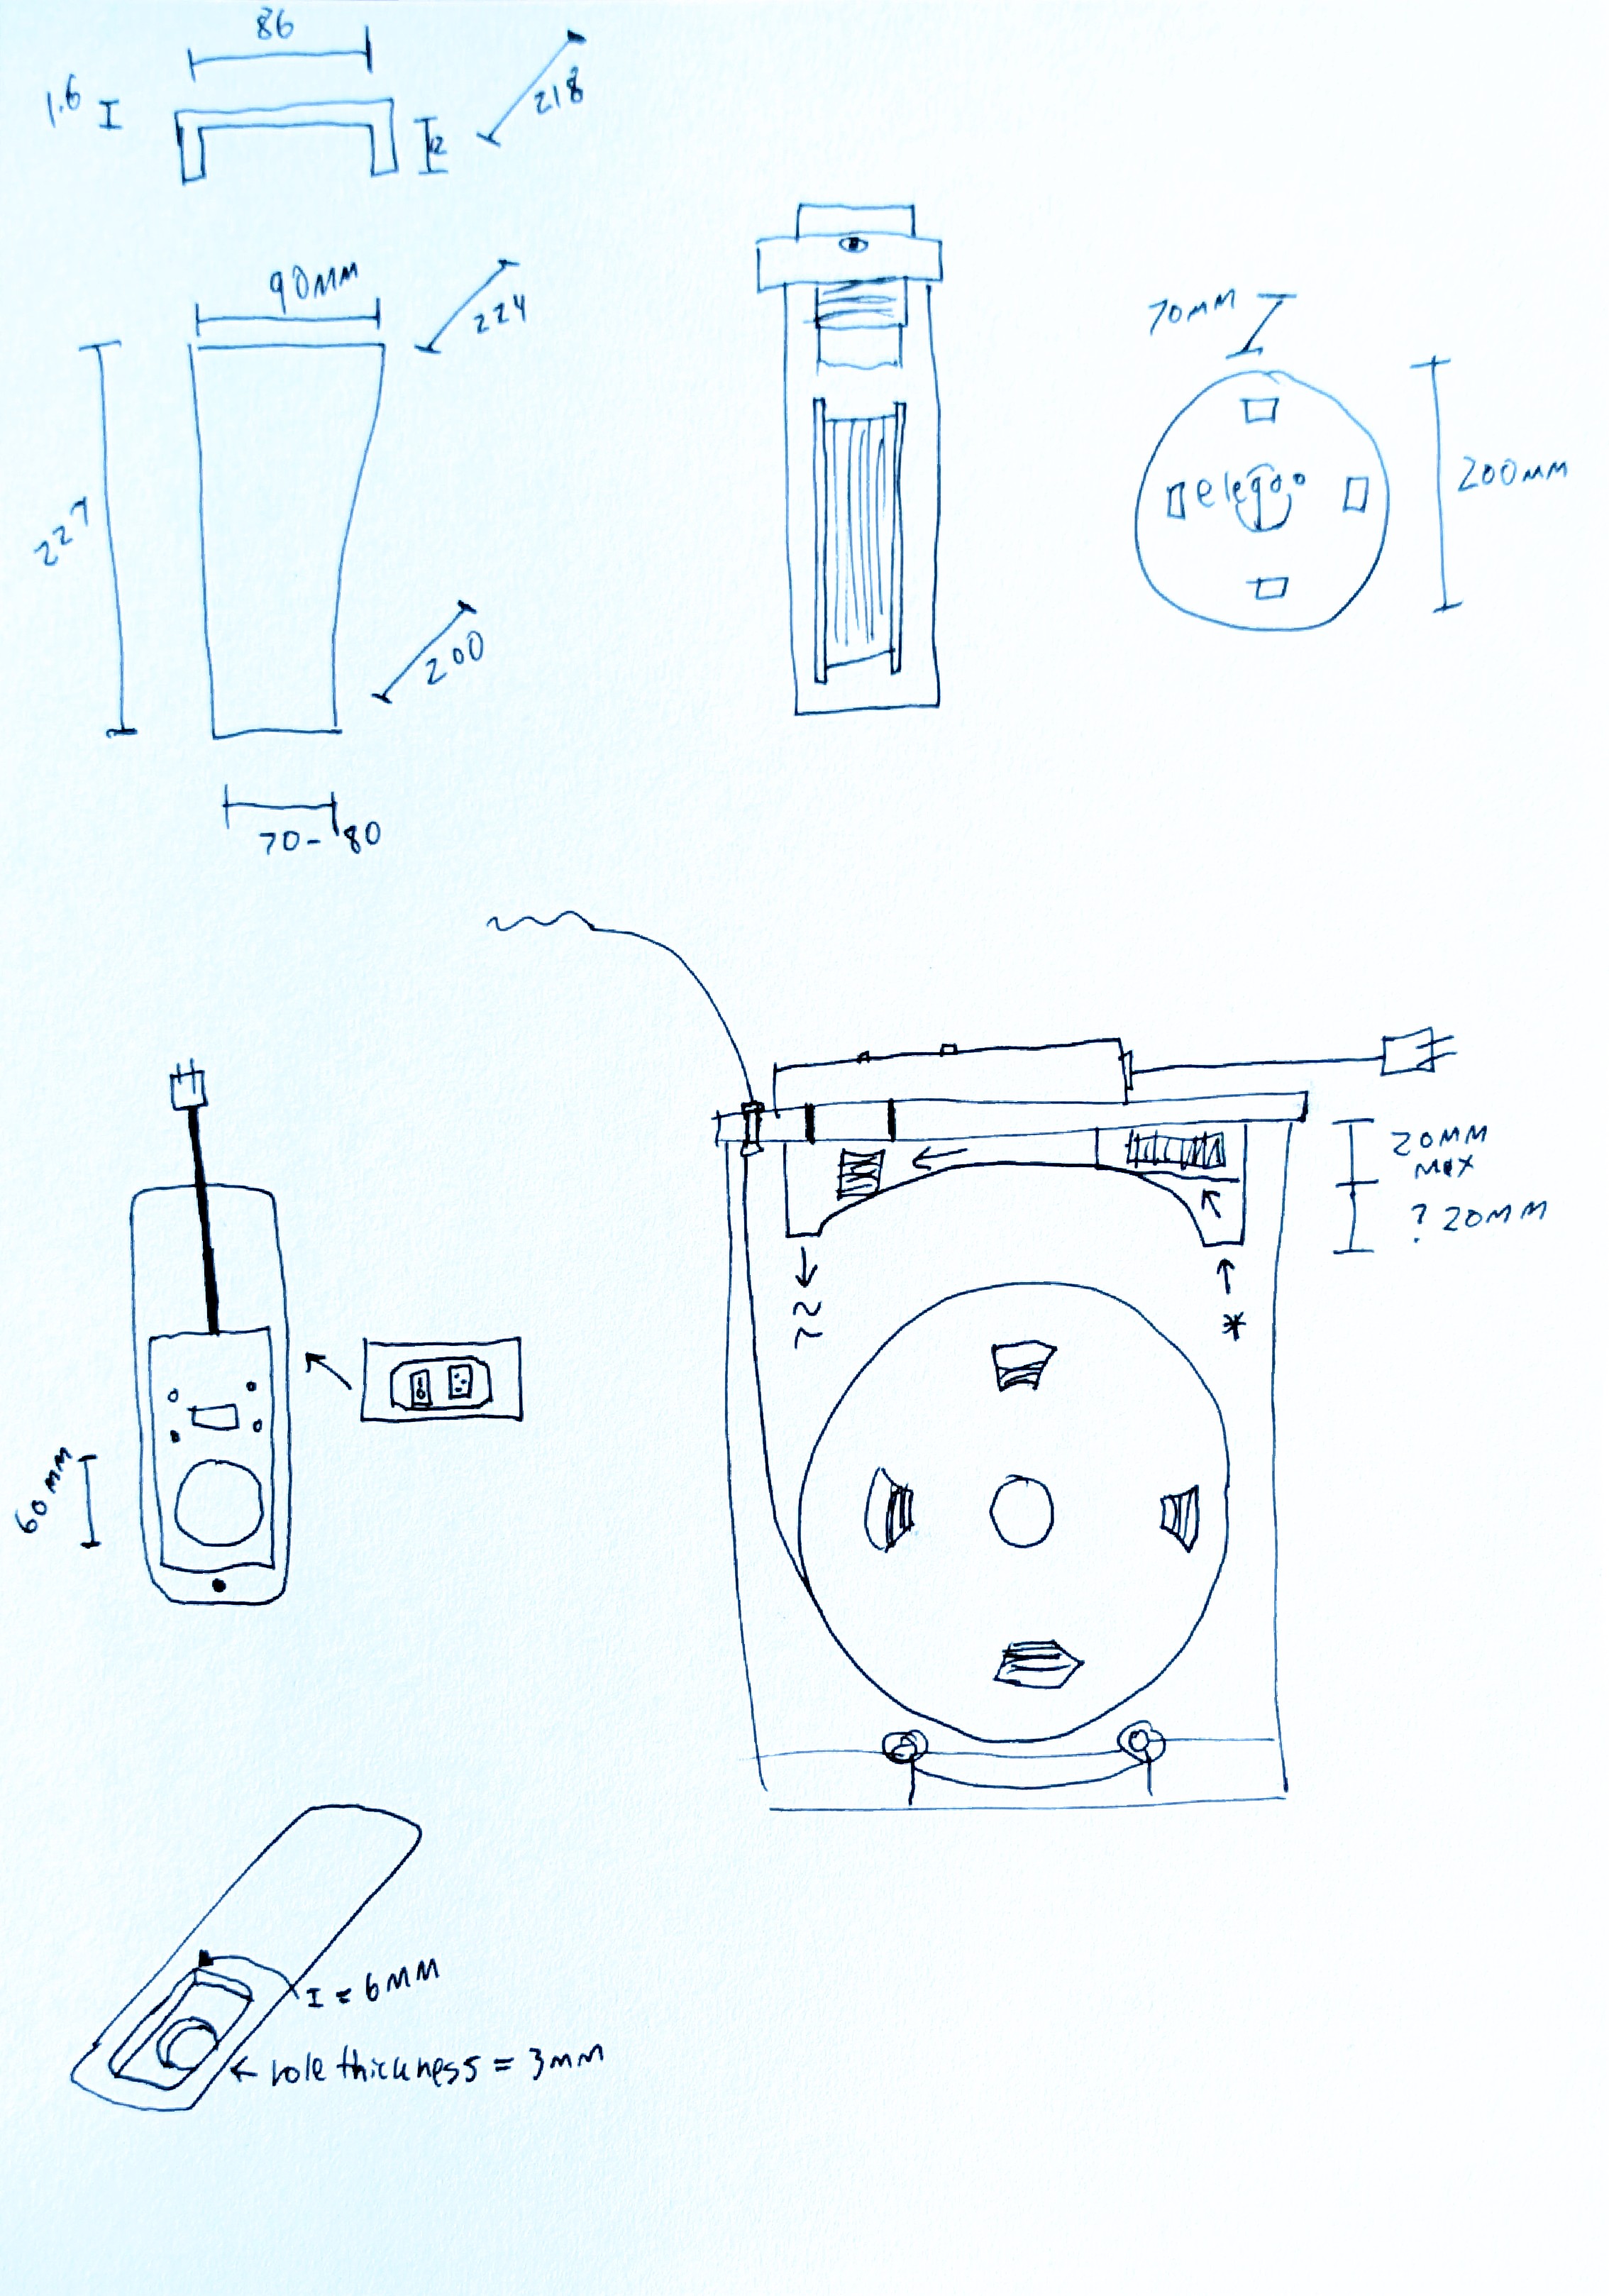 86
1.6
218
12
90MM
224
227
200
70-80
70MM
elegoo
200MM
20MM
MAX
? 20MM
60MM
I = 6MM
hole thickness = 3mm